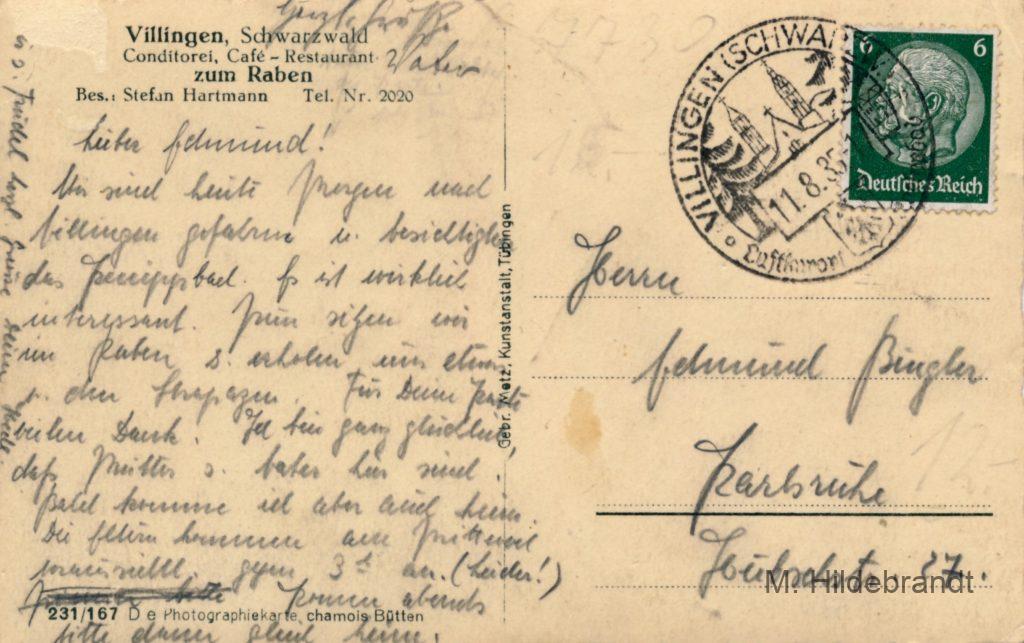 Herzl. Grüße
Vater
Villingen, Schwarzwald
Conditorei, Café - Restaurant
zum Raben
Bes.: Stefan Hartmann Tel. Nr. 2020
Lieber Edmund!
Wir sind heute Morgen nach
Villingen gefahren u. besichtigten
das Kneippbad. Es ist wirklich
interessant. Nun sitzen wir
im Raben u. erholen uns etwas
v. den Strapazen. Für Deine Karte
vielen Dank. Ich bin ganz glücklich,
daß Mutter u. Vater hier sind.
Bald komme ich aber auch heim.
Die Eltern kommen am Mittwoch
voraussichtl. gegen 3 an. (Leider!)
bitte komme abends
bitte dann gleich heim.
herzl. Grüße Deine
231/167 D e Photographiekarte, chamois Bütten
Gebr. Metz, Kunstanstalt, Tübingen
VILLINGEN (SCHWAR
11.8.35
Luftkurort
6 6
Deutsches Reich
Herrn
Edmund Bingler
Karlsruhe
Hübschstr. 27.
12.-
M. Hildebrandt